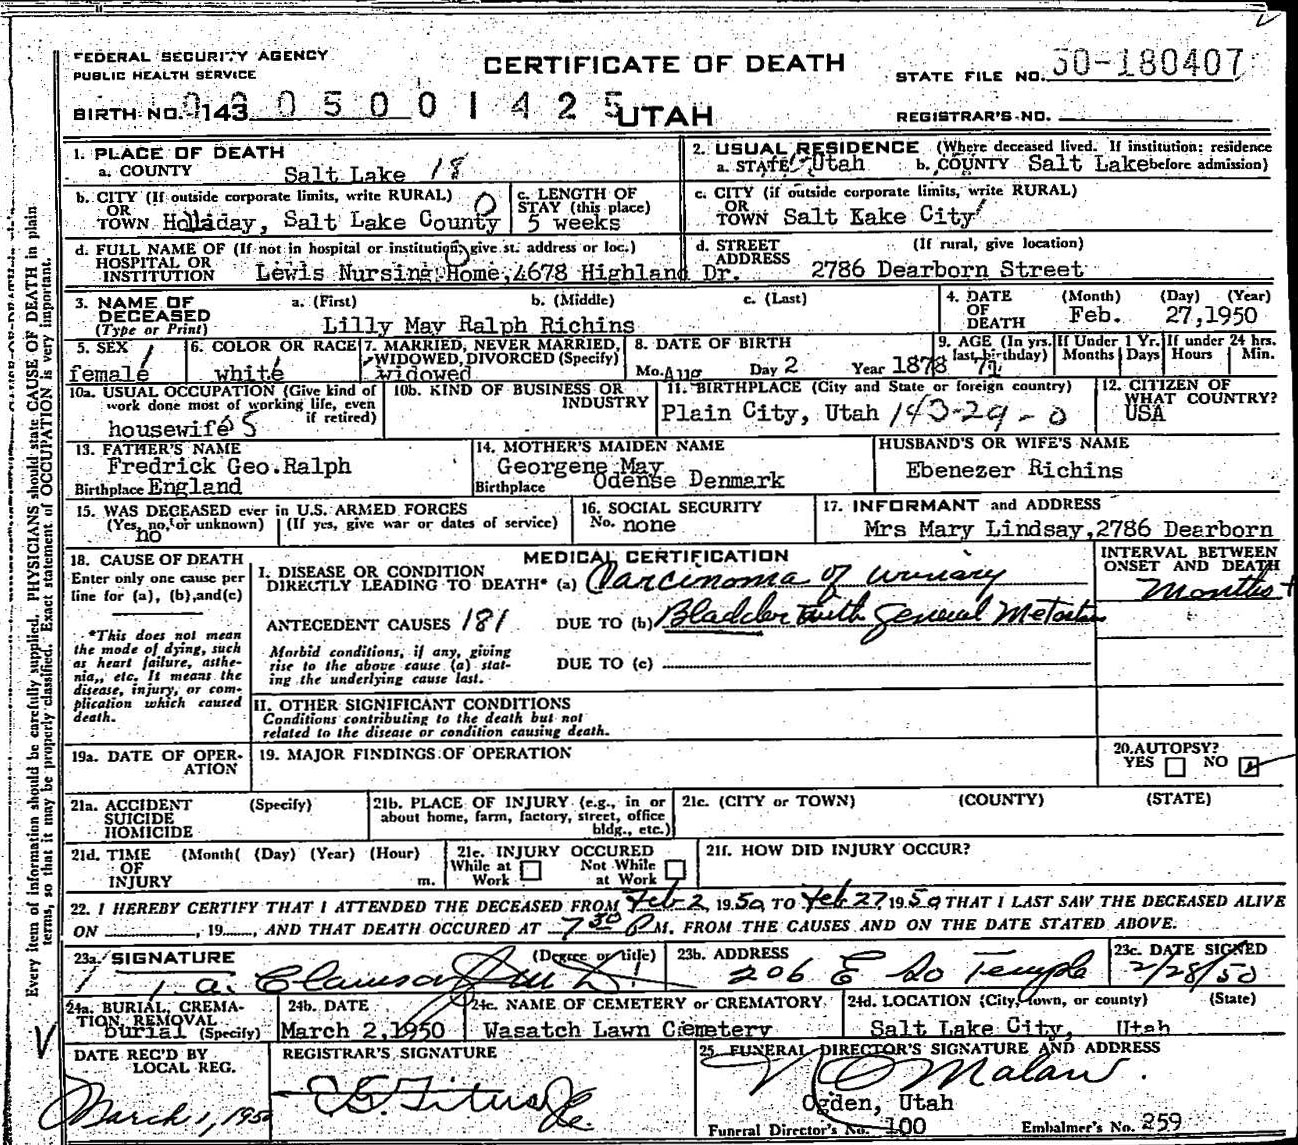 FEDERAL SECURITY AGENCY
PUBLIC HEALTH SERVICE
CERTIFICATE OF DEATH
STATE FILE NO. 50-180407
BIRTH NO. 143 0 5 0 0 1 4 2 5
UTAH
REGISTRAR'S NO.
1. PLACE OF DEATH
a. COUNTY Salt Lake 18
2. USUAL RESIDENCE (Where deceased lived. If institution: residence before admission)
a. STATE Utah b. COUNTY Salt Lake
b. CITY (If outside corporate limits, write RURAL) 0
OR TOWN Holladay, Salt Lake County
c. LENGTH OF STAY (this place)
5 weeks
c. CITY (if outside corporate limits, write RURAL)
OR TOWN Salt Kake City
d. FULL NAME OF (If not in hospital or institution, give st. address or loc.)
HOSPITAL OR INSTITUTION Lewis Nursing Home, 4678 Highland Dr.
d. STREET ADDRESS (If rural, give location)
2786 Dearborn Street
3. NAME OF DECEASED (Type or Print)
a. (First) b. (Middle) c. (Last)
Lilly May Ralph Richins
4. DATE OF DEATH (Month) (Day) (Year)
Feb. 27,1950
5. SEX
female
6. COLOR OR RACE
white
7. MARRIED, NEVER MARRIED, WIDOWED, DIVORCED (Specify)
widowed
8. DATE OF BIRTH
Mo. Aug Day 2 Year 1878
9. AGE (In yrs. last birthday) 71
If Under 1 Yr. Months Days
If under 24 hrs. Hours Min.
10a. USUAL OCCUPATION (Give kind of work done most of working life, even if retired)
housewife 5
10b. KIND OF BUSINESS OR INDUSTRY
11. BIRTHPLACE (City and State or foreign country)
Plain City, Utah 143-29-0
12. CITIZEN OF WHAT COUNTRY?
USA
13. FATHER'S NAME
Fredrick Geo.Ralph
Birthplace England
14. MOTHER'S MAIDEN NAME
Georgene May
Birthplace Odense Denmark
HUSBAND'S OR WIFE'S NAME
Ebenezer Richins
15. WAS DECEASED ever in U.S. ARMED FORCES
(Yes, no, or unknown) (If yes, give war or dates of service)
no
16. SOCIAL SECURITY
No. none
17. INFORMANT and ADDRESS
Mrs Mary Lindsay,2786 Dearborn
18. CAUSE OF DEATH
Enter only one cause per line for (a), (b),and(c)
*This does not mean the mode of dying, such as heart failure, asthenia,, etc. It means the disease, injury, or complication which caused death.
MEDICAL CERTIFICATION
I. DISEASE OR CONDITION
DIRECTLY LEADING TO DEATH* (a) Carcinoma of urinary
ANTECEDENT CAUSES 181 DUE TO (b) Bladder with general Metastasis
Morbid conditions, if any, giving rise to the above cause (a) stating the underlying cause last.
DUE TO (c)
INTERVAL BETWEEN ONSET AND DEATH
Months +
II. OTHER SIGNIFICANT CONDITIONS
Conditions contributing to the death but not
related to the disease or condition causing death.
19a. DATE OF OPERATION
19. MAJOR FINDINGS OF OPERATION
20. AUTOPSY?
YES NO
21a. ACCIDENT (Specify)
SUICIDE
HOMICIDE
21b. PLACE OF INJURY (e.g., in or about home, farm, factory, street, office bldg., etc.)
21c. (CITY or TOWN) (COUNTY) (STATE)
21d. TIME OF INJURY (Month( (Day) (Year) (Hour) m.
21e. INJURY OCCURED
While at Work Not While at Work
21f. HOW DID INJURY OCCUR?
22. I HEREBY CERTIFY THAT I ATTENDED THE DECEASED FROM Feb 2, 1950, TO Feb 27 1950 THAT I LAST SAW THE DECEASED ALIVE
ON , 19 , AND THAT DEATH OCCURED AT 7 30 P M. FROM THE CAUSES AND ON THE DATE STATED ABOVE.
23a. SIGNATURE (Degree or title)
23b. ADDRESS
206 E So Temple
23c. DATE SIGNED
2/28/50
24a. BURIAL, CREMATION REMOVAL (Specify)
burial
24b. DATE
March 2,1950
24c. NAME OF CEMETERY or CREMATORY
Wasatch Lawn Cemetery
24d. LOCATION (City, town, or county) (State)
Salt Lake City, Utah
DATE REC'D BY LOCAL REG.
March 1, 1950
REGISTRAR'S SIGNATURE
25. FUNERAL DIRECTOR'S SIGNATURE AND ADDRESS
Ogden, Utah
Funeral Director's No. 100 Embalmer's No. 259
Every item of information should be carefully supplied. PHYSICIANS should state CAUSE OF DEATH in plain
terms, so that it may be properly classified. Exact statement of OCCUPATION is very important.